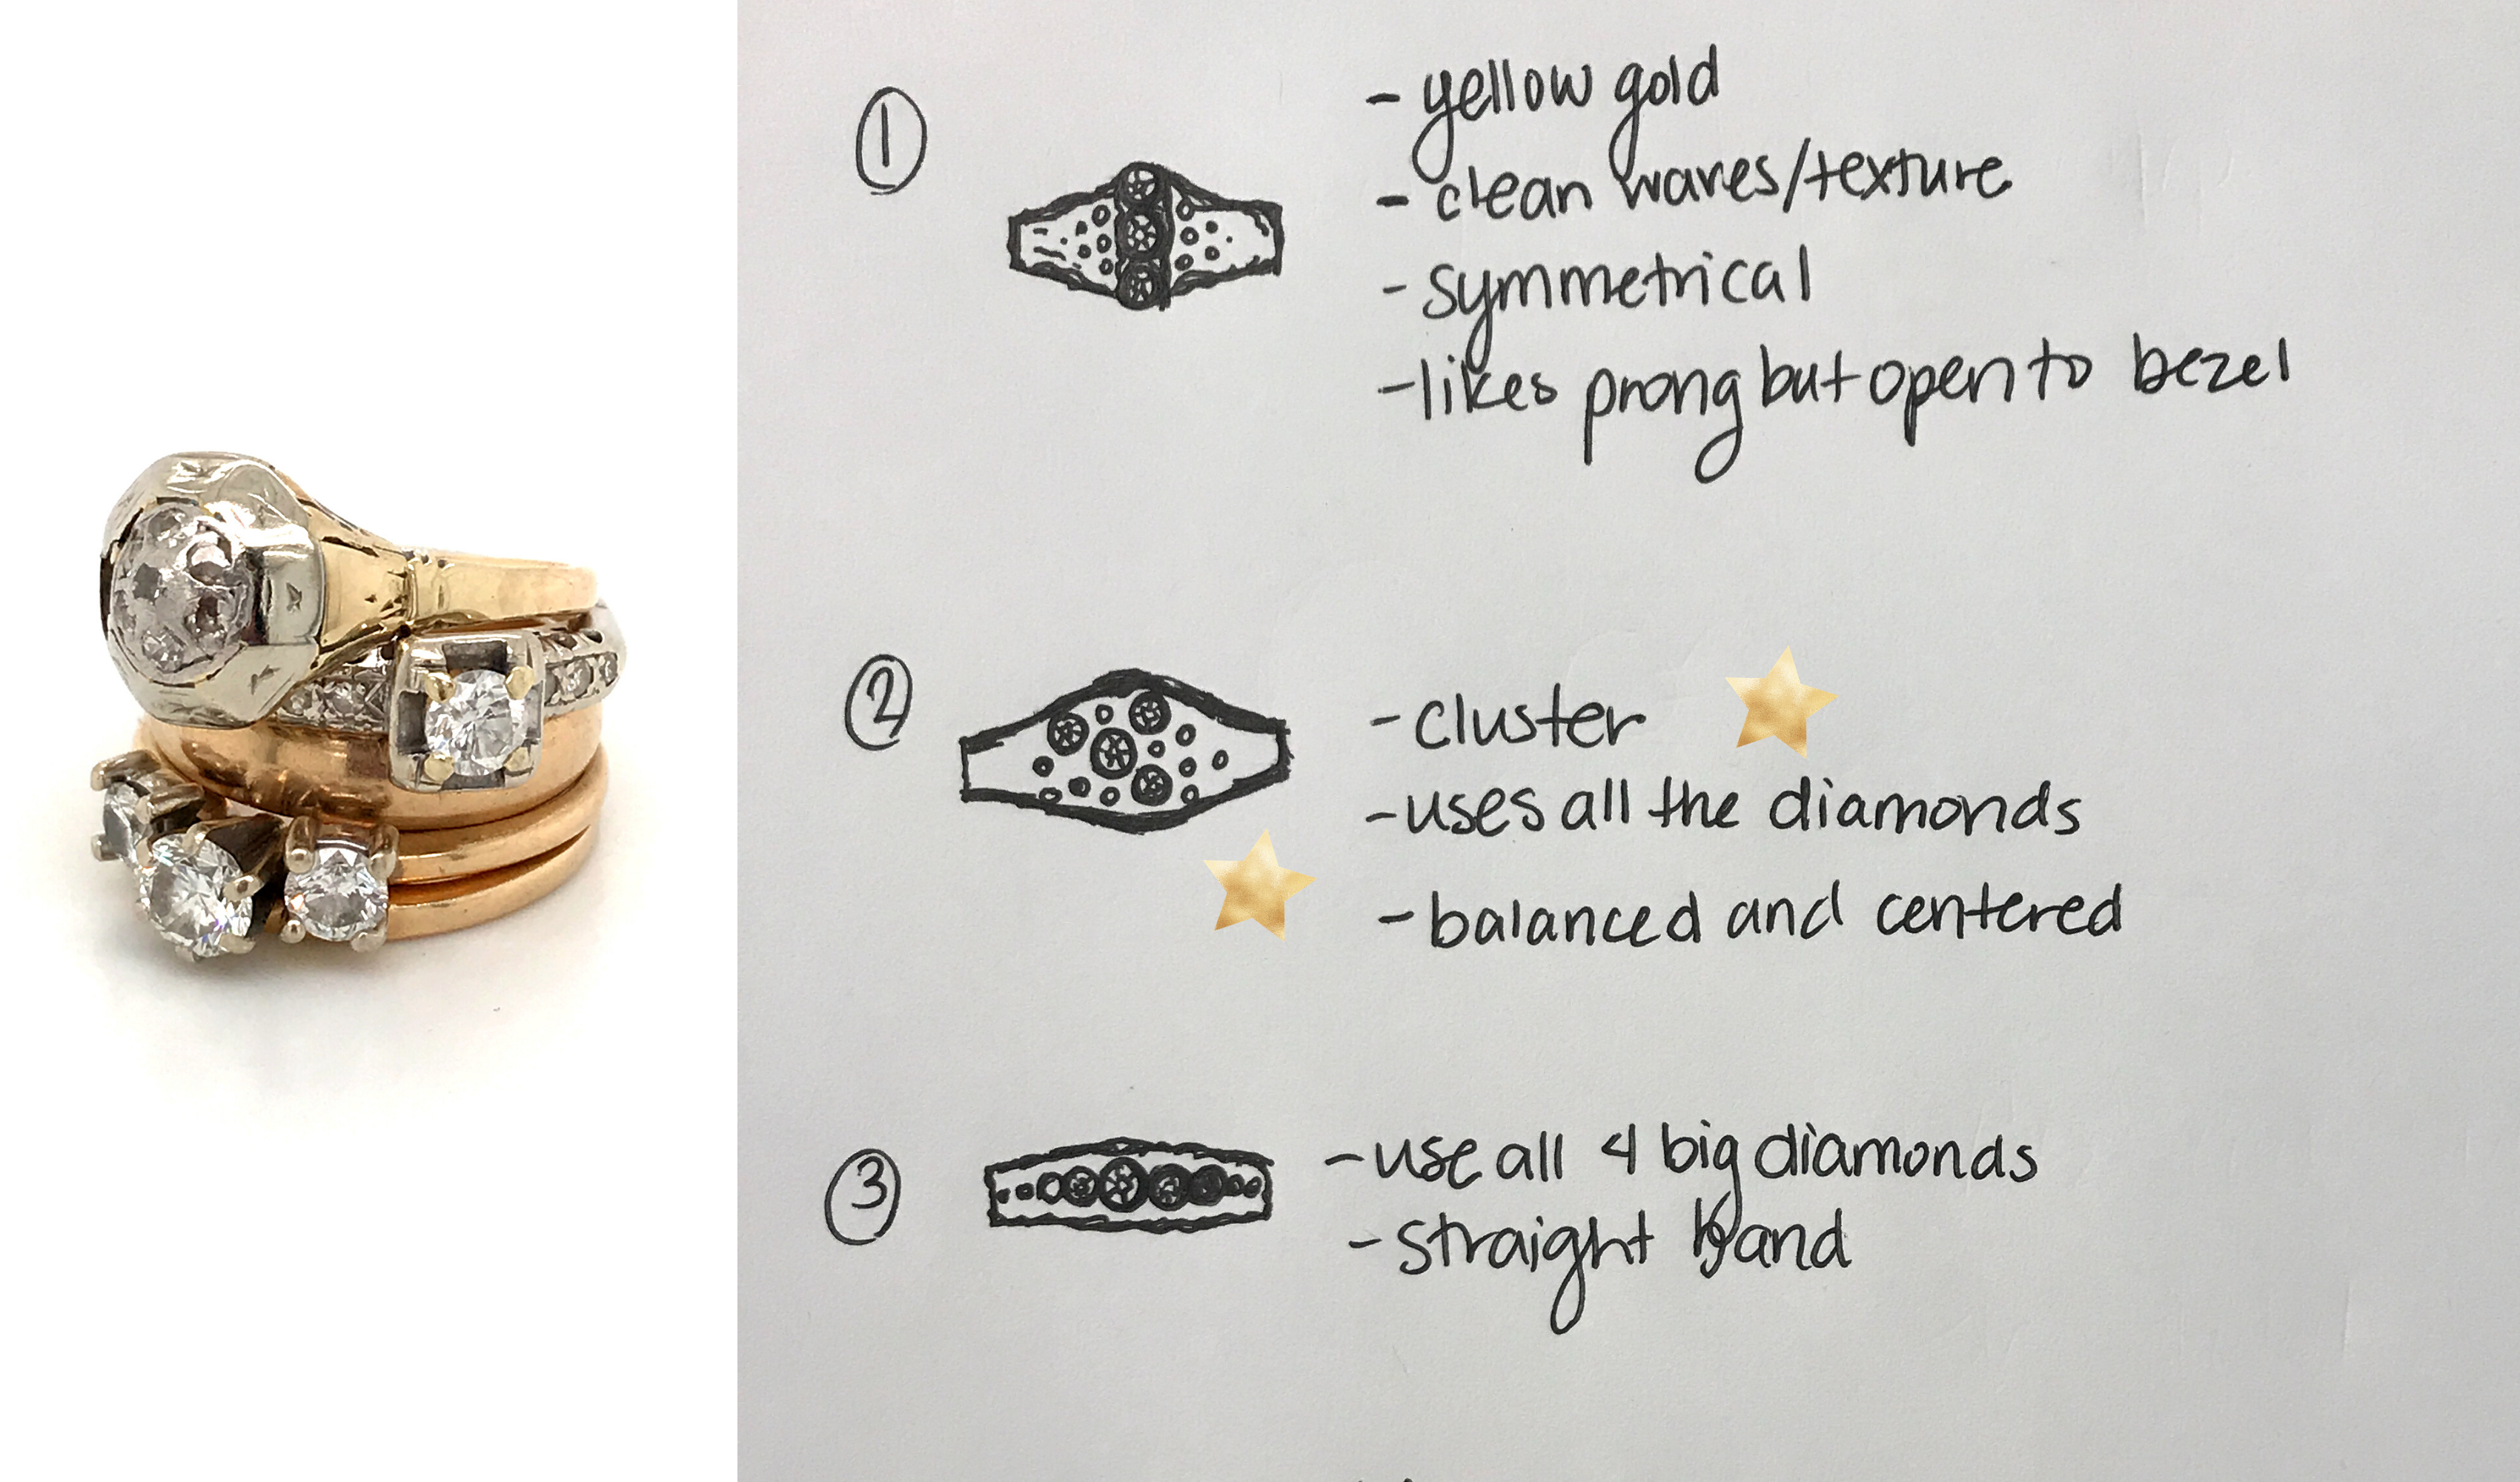 ①
- yellow gold
- clean waves/texture
- symmetrical
- likes prong but open to bezel
②
- cluster
- uses all the diamonds
- balanced and centered
③
- use all 4 big diamonds
- straight band